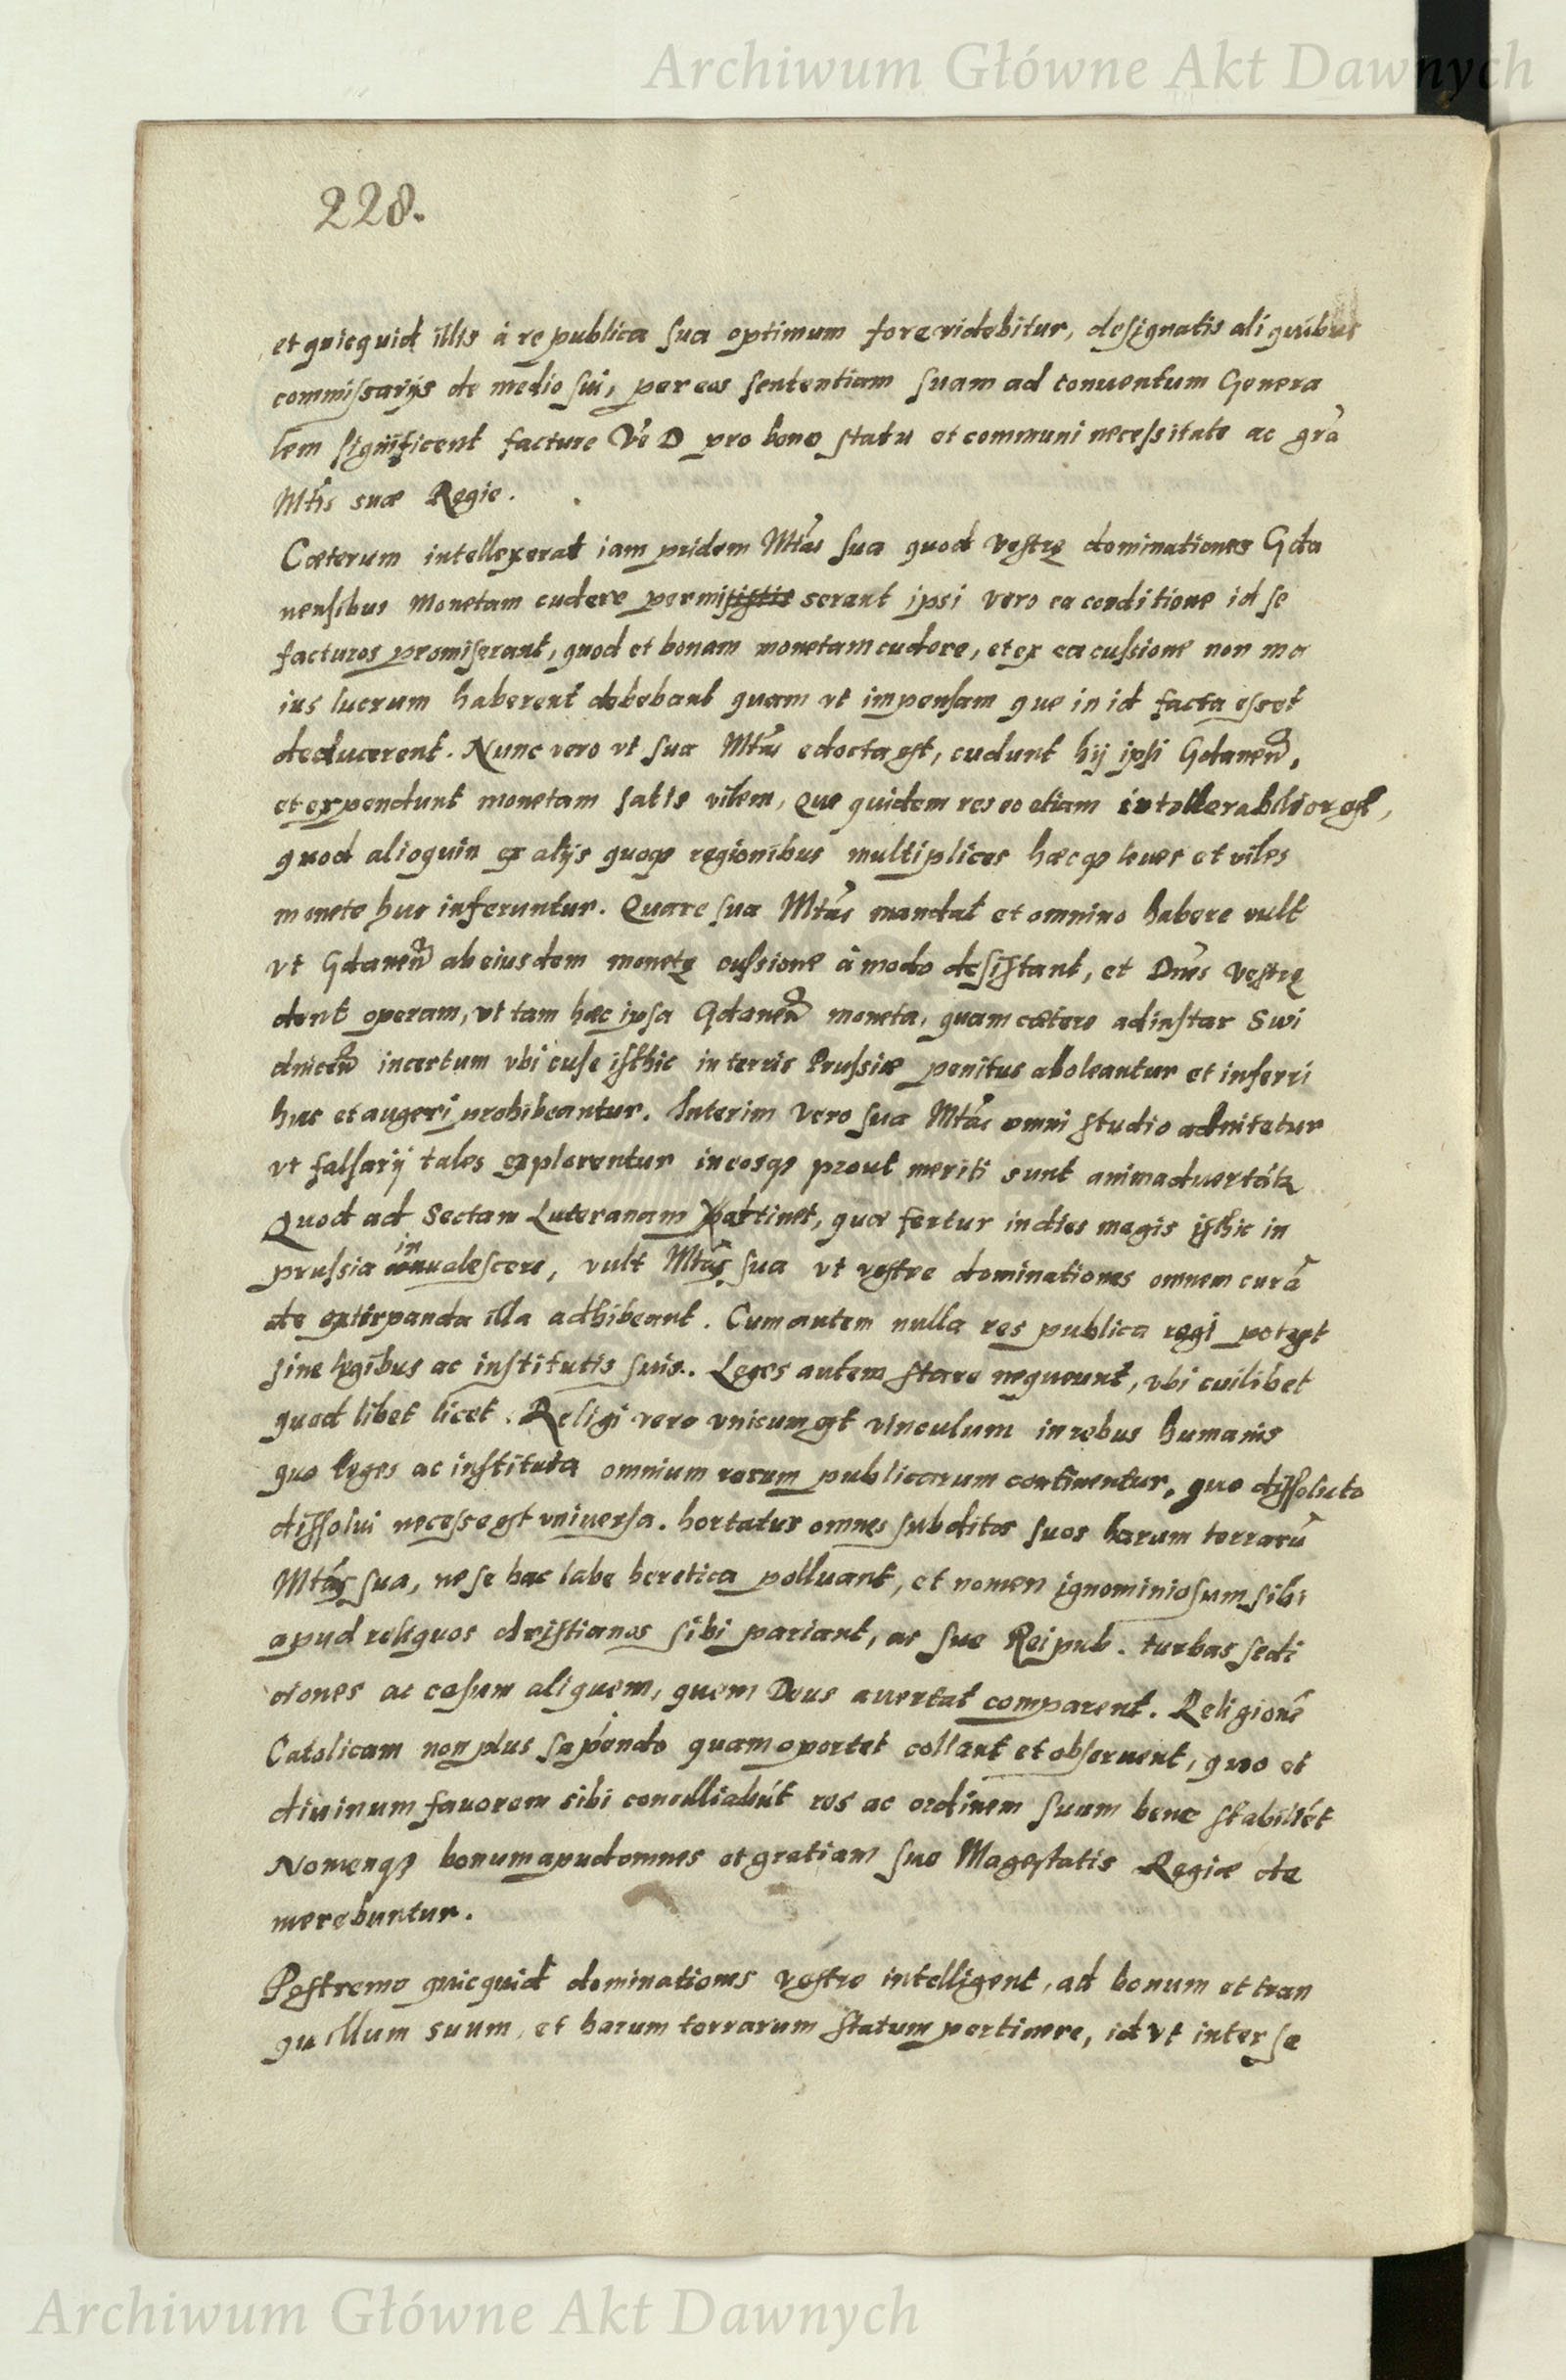 Archiwum Główne Akt Dawnych
228.
et quicquid illis à re publica sua optimum fore videbitur, designatis aliquibus
commissarijs de medio sui, per eos sententiam suam ad conuentum Genera
lem significent facture Ve D pro bono statu et communi necessitate ac gra
Mtis suæ Regie.
Cæterum intellexerat iam pridem Mtas sua quod vestrę dominationes Gda
nensibus Monetam cudere permisistis serant ipsi vero ea conditione id se
facturos promiserant, quod et bonam monetam cudere, et ex ea cussione non ma
ius lucrum haberent debebant quam vt impensam que in id facta esset
deducerent. Nunc vero vt sua Mtas edocta est, cudunt hij ipsi Gdanen,
et expendunt monetam satis vilem, que quidem res eo etiam intollerabilior est,
quod alioquin ex alijs quoq regionibus multiplices hæcq leues et viles
monete huc inferuntur. Quare sua Mtas mandat et omnino habere vult
vt Gdanen ab eiusdem monetę cussione à modo desistant, et Dnes vestrę
dent operam, vt tam hæc ipsa Gdanen moneta, quam cætere ad instar Swi
dnicen incertum vbi cuse isthic in terris Prussiæ penitus aboleantur et inferri
huc et augeri prohibeantur. Interim vero sua Mtas omni studio adnitetur
vt falsarij tales explorentur in eosq prout meriti sunt animaduertat
Quod ad Sectam Luteranam pertinet, quæ fertur in dies magis isthic in
prussia inualescere, vult Mtas sua vt vestre dominationes omnem curā
de extirpanda illa adhibeant. Cum autem nulla res publica regi potest
sine legibus ac institutis suis. Leges autem stare nequeunt, vbi cuilibet
quod libet licet. Religi vero vnicum est vinculum in rebus humanis
quo leges ac instituta omnium rerum publicarum continentur, quo dissoluto
dissolui necesse est vniuersa. hortatur omnes subditos suos harum terrarū
Mtas sua, ne se hac labe heretica polluant, et nomen ignominiosum sibi
apud reliquos christianos sibi pariant, ac sue Reipub. turbas sedi
ciones ac casum aliquem, quem Deus auertat comparent. Religionē
Catolicam non plus sapiendo quam oportet collant et obseruent, quo et
diuinum fauorem sibi concilliabūt res ac ordinem suum bene stabiliēt
Nomenq bonum apud omnes et gratiam sue Magestatis Regiæ de
merebuntur.
Postremo quicquid dominationes vestre intelligent, ad bonum et tran
quillum suum, et harum terrarum statum pertinere, id vt inter se
Archiwum Główne Akt Dawnych